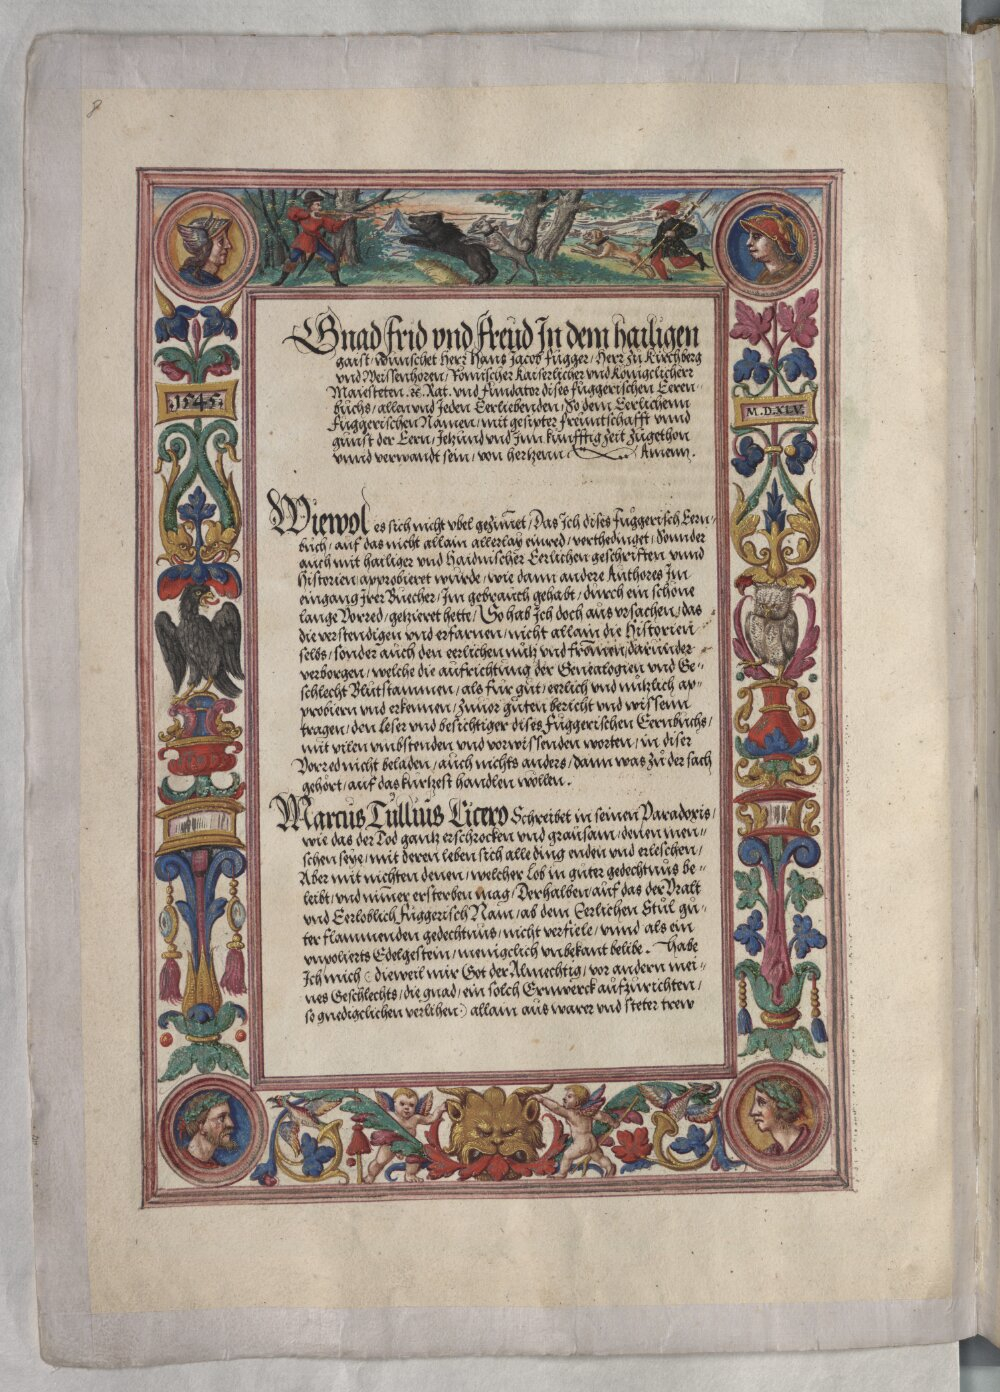 1545
M.D.XLV.
Gnad frid vnd freud Jn dem hailigen
gaist / wünschet Herr Hans Jacob Fugger / Herr zu Kirchberg
vnd Weissenhoren / Römischer Kaiserlicher vnd Königclicher
Maiesteten. ꝛc. Rat. vnd fundator dises fuggerischen Eeren-
buchs / allen vnd Jeden Eerliebenden / So dem Eerlichenn
Fuggerischen Namen / mit gesipter freuntschafft vnnd
gunst der Eern / Jetzund vnd Jnn künfftig zeit zugethon
vnnd verwandt sein / von hertzenn / Amenn.
Wiewol es sich nicht vbel gezimet / Das Jch dises Fuggerisch Eern-
buch / auf das nicht allain allerlay einred / verthedinget / Sonnder
auch mit hailiger vnd Haidnischer Eerlichen geschrifften vnnd
Historien / approbieret wurde / wie dann andere Authores Jm
eingang Jrer Buecher / Jm gebrauch gehabt / durch ein schöne
lange Vorred / geziere​t hette / So hab Jch doch aus vrsachen / das
die verstendigen vnd erfarnen / nicht allain die Historien
selbs / sonder auch den eerlichen nutz vnd fromen / darunder
verborgen / welche die aufrichtung der Genealogien vnd Ge-
schlecht Blutstammen / als für gut / eerlich vnd nützlich ap-
probiern vnd erkennen / Zuuor guten bericht vnd wissenn
tragen / den Leser vnd besichtiger dises Fuggerischen Eernbuchs /
mit vilen vmbstenden vnd vorwissenden worten / in diser
Vorred nicht beladen / auch nichts anders / dann was zu der sach
gehört / auf das kürtzest handlen wöllen.
Marcus Tullius Cicero Schreibet in seinen Paradoxis /
wie das der Tod gantz erschrocken vnd grausam / denen men-
schen seye / mit deren leben sich alle ding enden vnd erleschen /
Aber mit nichten denen / welcher Lob in guter gedechtnus be-
leibt / vnd nimer ersterben mag / Derhalben / auf das der Vralt
vnd Eerloblich Fuggerisch Nam / ab dem Eerlichen Stul gu-
ter flammenden gedechtnus / nicht verfiele / vnnd als ein
vnpolierts Edelgestein / menigclich vnbekant belibe. Habe
Jch mich (dieweil mir Got der Almechtig / vor andern mei-
nes Geschlechts / die gnad / ein solch Ernwerck aufzurichten /
so gnedigclichen verlihen) allain aus warer vnd steter trew